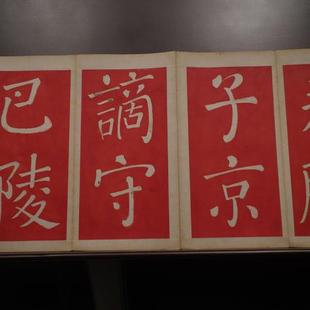 子京
謫守
巴陵